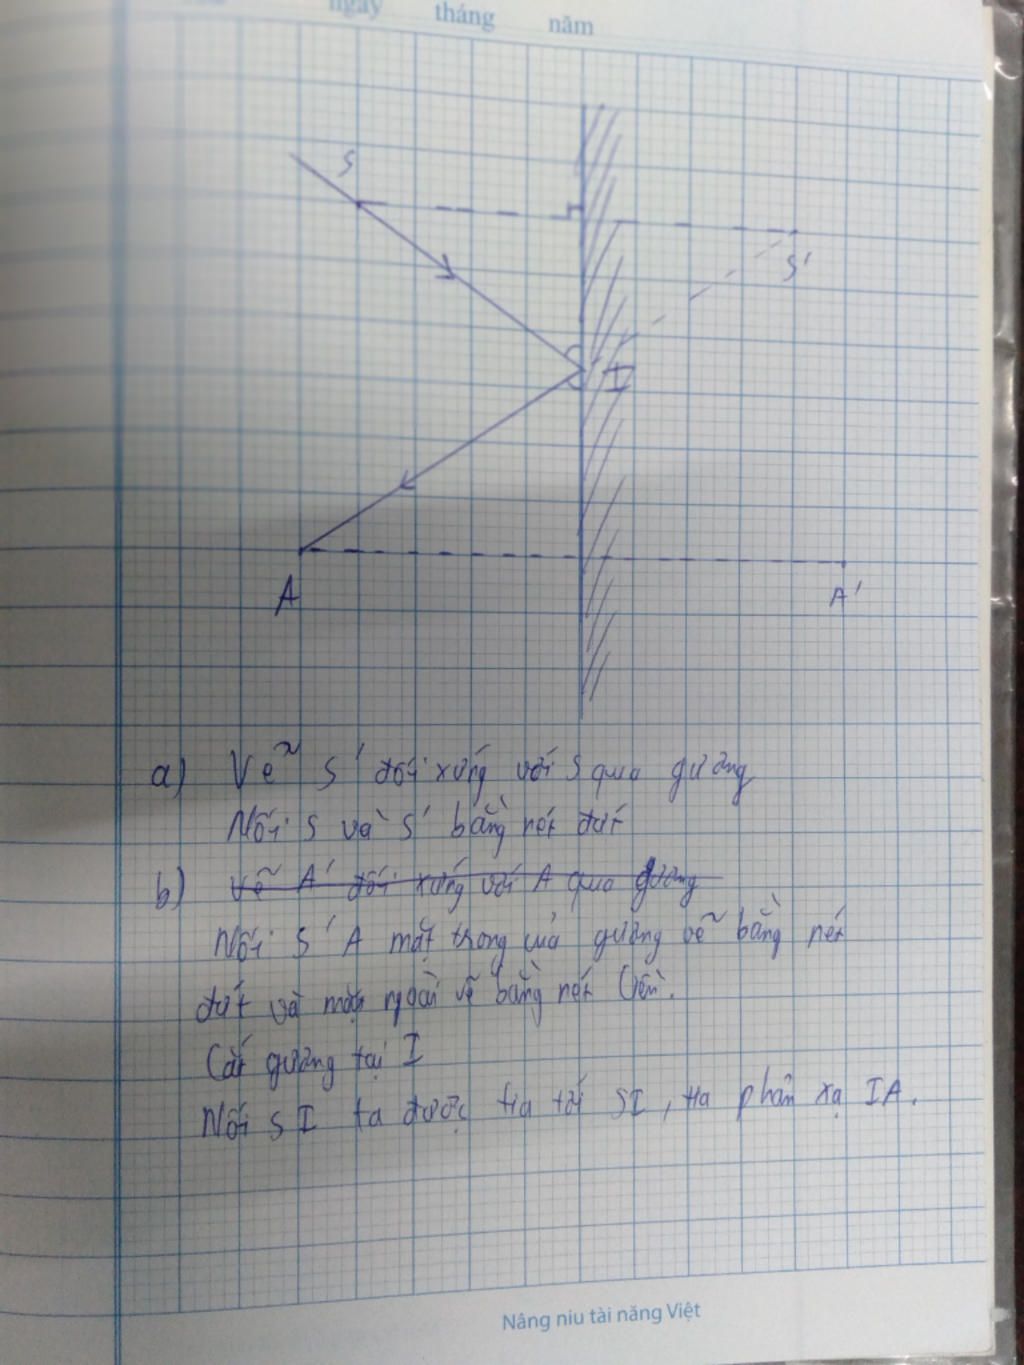 ngày tháng năm
S
S'
I
A
A'
a) Vẽ S' đối xứng với S qua gương
Nối S và S' bằng nét đứt
b) Vẽ A' đối xứng với A qua gương
Nối S'A mặt trong của gương vẽ bằng nét
đứt và mặt ngoài vẽ bằng nét liền.
Cắt gương tại I
Nối SI ta được tia tới SI, tia phản xạ IA.
Nâng niu tài năng Việt